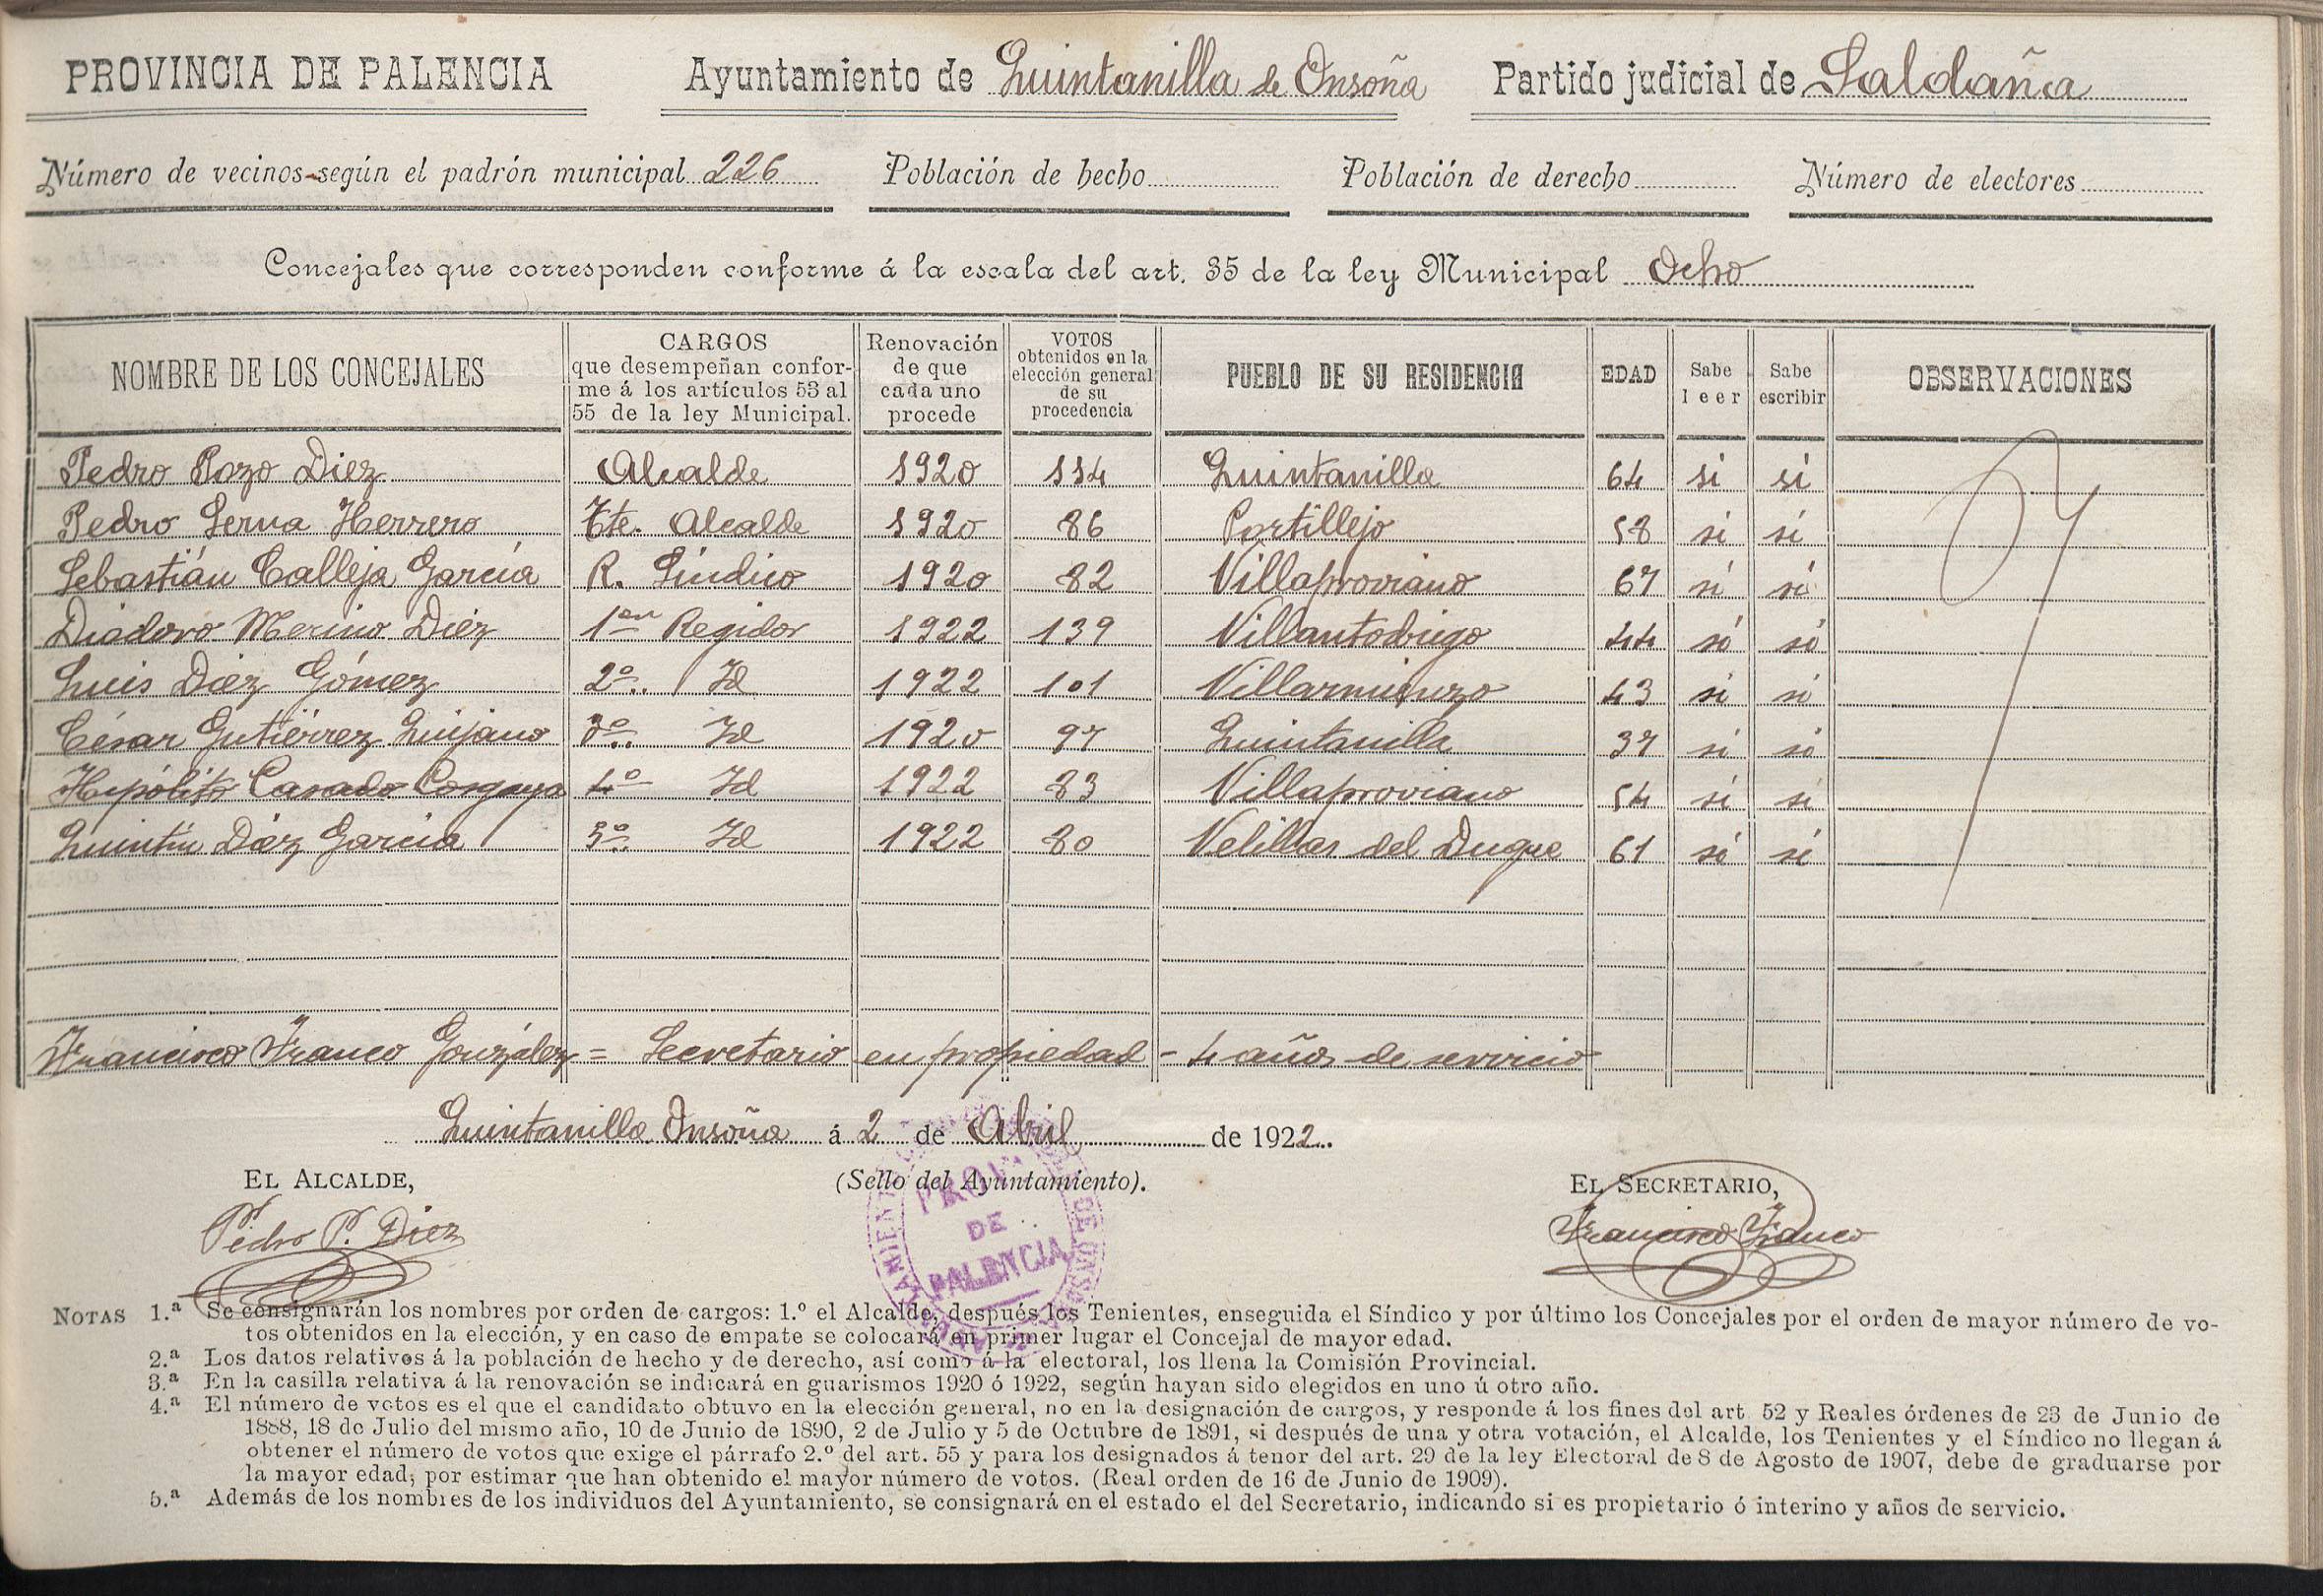 PROVINCIA DE PALENCIA Ayuntamiento de Quintanilla de Onsoña Partido judicial de Saldaña
Número de vecinos según el padrón municipal 226 Población de hecho Población de derecho Número de electores
Concejales que corresponden conforme á la escala del art. 35 de la ley Municipal Ocho
NOMBRE DE LOS CONCEJALES CARGOS que desempeñan conforme á los artículos 53 al 55 de la ley Municipal. Renovación de que cada uno procede VOTOS obtenidos en la elección general de su procedencia PUEBLO DE SU RESIDENCIA EDAD Sabe leer Sabe escribir OBSERVACIONES
Pedro Pozo Diez Alcalde 1920 114 Quintanilla 64 si si
Pedro Serna Herrero Tte. Alcalde 1920 86 Portillejo 58 si si
Sebastián Calleja García R. Síndico 1920 82 Villaproviano 67 si si
Diodoro Merino Diez 1er Regidor 1922 139 Villantodrigo 44 si si
Luis Diez Gómez 2º Id 1922 101 Villarmienzo 43 si si
César Gutiérrez Quijano 3º Id 1920 97 Quintanilla 37 si si
Hipólito Casado Cosgaya 4º Id 1922 83 Villaproviano 54 si si
Quintín Diez García 5º Id 1922 80 Velillas del Duque 61 si si
Francisco Franco González = Secretario en propiedad - 4 años de servicio
Quintanilla Onsoña á 2 de Abril de 1922.
EL ALCALDE, (Sello del Ayuntamiento). EL SECRETARIO,
Pedro P. Diez PROV. DE PALENCIA Francisco Franco
NOTAS 1.ª Se consignarán los nombres por orden de cargos: 1.º el Alcalde, después los Tenientes, enseguida el Síndico y por último los Concejales por el orden de mayor número de vo-
tos obtenidos en la elección, y en caso de empate se colocará en primer lugar el Concejal de mayor edad.
2.ª Los datos relativos á la población de hecho y de derecho, así como á la electoral, los llena la Comisión Provincial.
3.ª En la casilla relativa á la renovación se indicará en guarismos 1920 ó 1922, según hayan sido elegidos en uno ú otro año.
4.ª El número de votos es el que el candidato obtuvo en la elección general, no en la designación de cargos, y responde á los fines del art 52 y Reales órdenes de 23 de Junio de
1888, 18 de Julio del mismo año, 10 de Junio de 1890, 2 de Julio y 5 de Octubre de 1891, si después de una y otra votación, el Alcalde, los Tenientes y el Síndico no llegan á
obtener el número de votos que exige el párrafo 2.º del art. 55 y para los designados á tenor del art. 29 de la ley Electoral de 8 de Agosto de 1907, debe de graduarse por
la mayor edad; por estimar que han obtenido el mayor número de votos. (Real orden de 16 de Junio de 1909).
5.ª Además de los nombres de los individuos del Ayuntamiento, se consignará en el estado el del Secretario, indicando si es propietario ó interino y años de servicio.